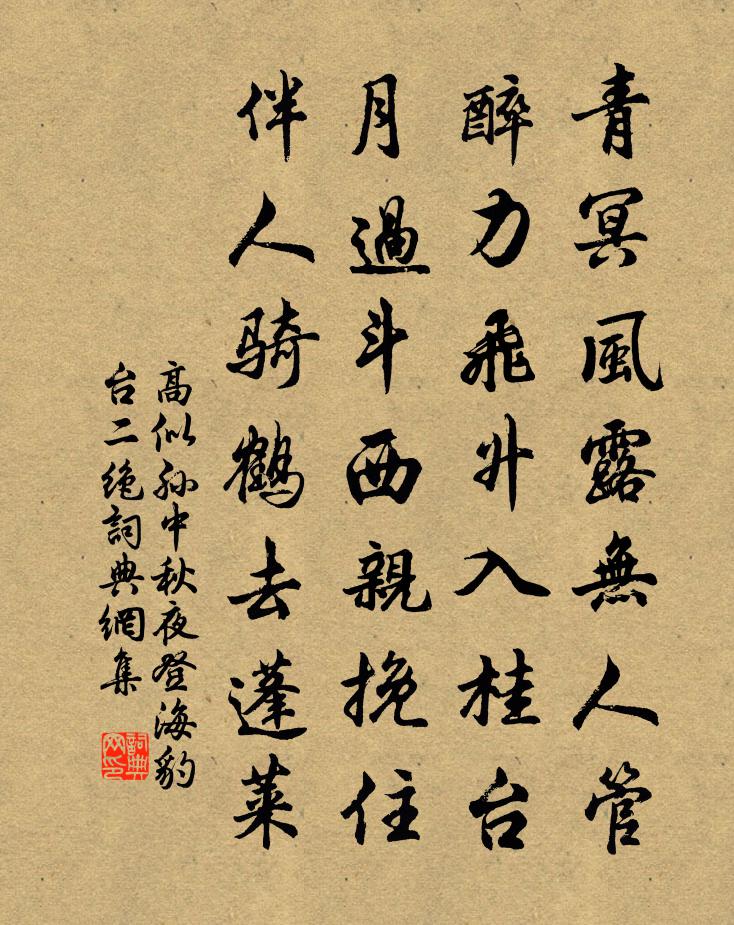 青冥風露無人管
醉力飛升入桂台
月過斗西親挽住
伴人騎鶴去蓬萊
高似孙中秋夜登海豹
台二绝詞典網集
詞典网印